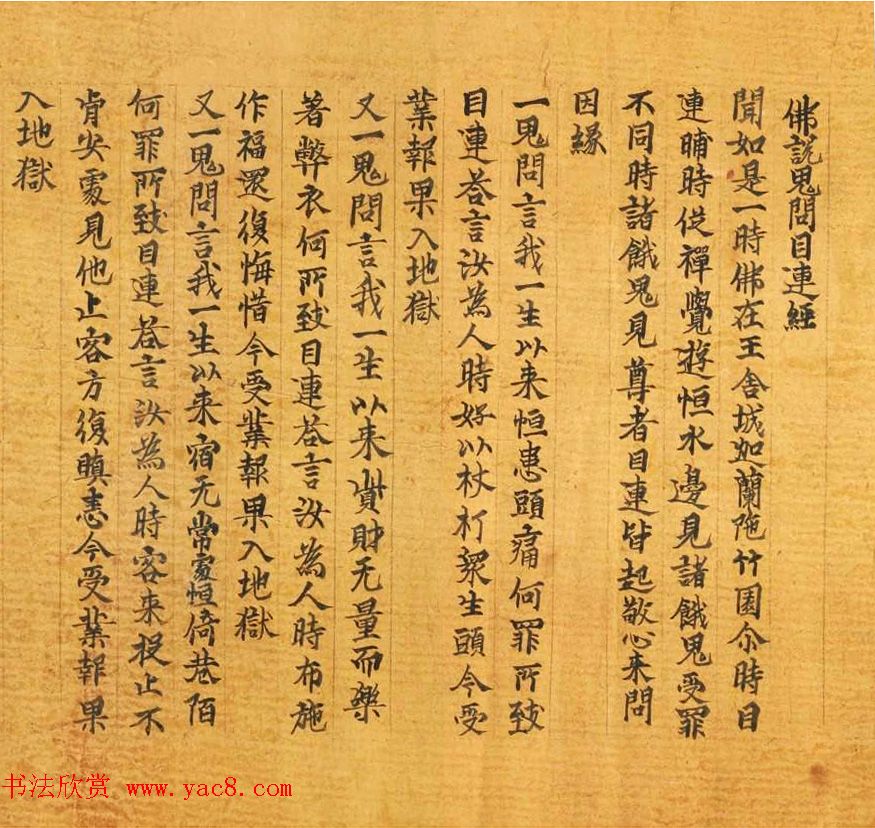 佛說鬼問目連經
聞如是一時佛在王舍城迦蘭陁竹園尒時目
連晡時從禪覺遊恒水邊見諸餓鬼受罪
不同時諸餓鬼見尊者目連皆起敬心来問
因緣
一鬼問言我一生以来恒患頭痛何罪所致
目連荅言汝為人時好以杖打衆生頭今受
業報果入地獄
又一鬼問言我一生以来資財无量而樂
著弊衣何所致目連荅言汝為人時布施
作福還復悔惜今受業報果入地獄
又一鬼問言我一生以来宿无常處恒倚巷陌
何罪所致目連荅言汝為人時客来投止不
肯安處見他止客方復瞋恚今受業報果
入地獄
书法欣赏 www.yac8.com